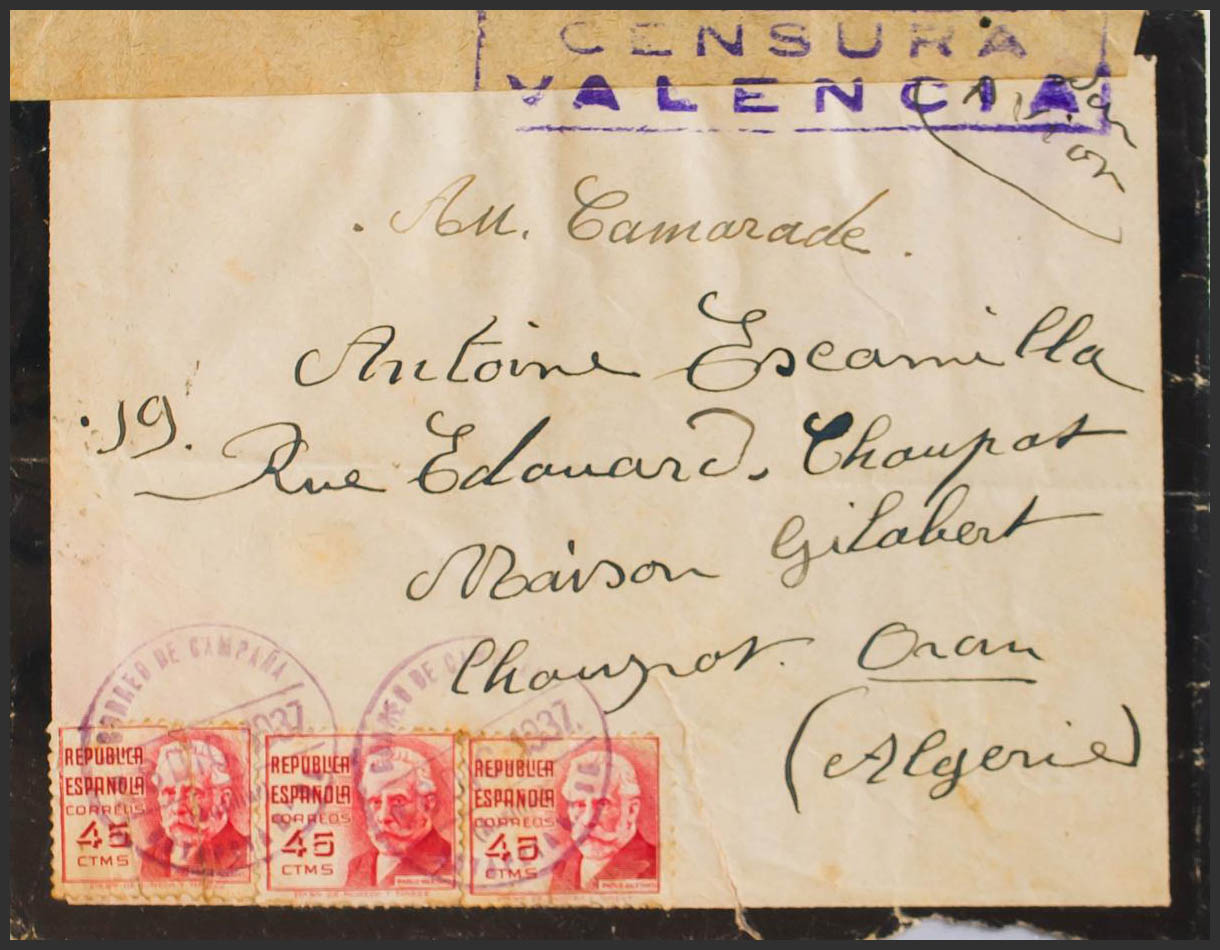 CENSURA
VALENCIA
Par
Avion
Au. Camarade.
Antoine Escamilla
19. Rue Edouard, Choupot
Maison Gilabert
Choupot. Oran
(Algerie)
CORREO DE CAMPAÑA
1937
CORREO DE
1937
REPUBLICA
ESPAÑOLA
CORREOS
45
CTMS
REPUBLICA
ESPAÑOLA
CORREOS
45
CTMS
PABLO IGLESIAS
REPUBLICA
ESPAÑOLA
CORREOS
45
CTMS
PABLO IGLESIAS